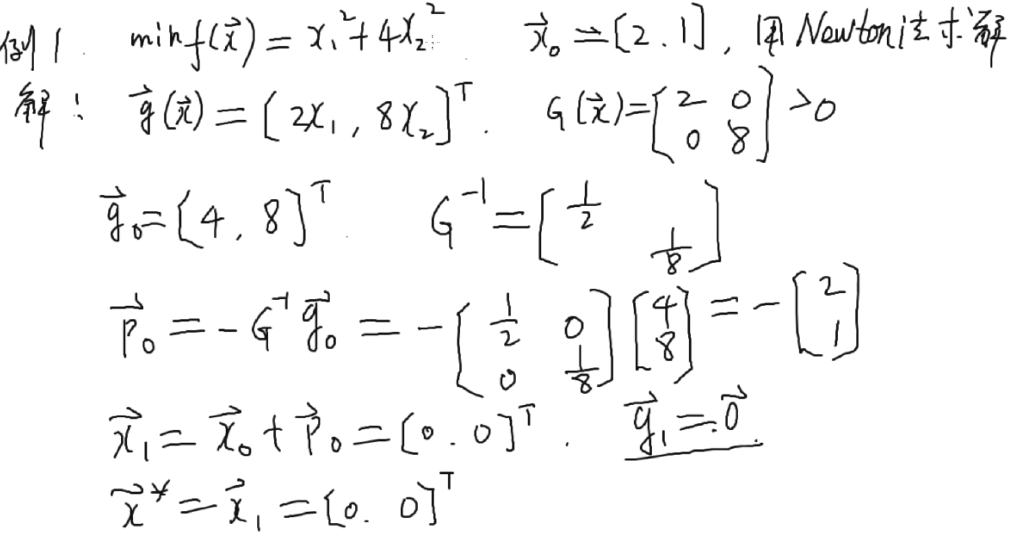 例1. min f(x⃗) = x₁² + 4x₂²   x⃗₀ = [2. 1], 用Newton法求解
解: g⃗(x⃗) = [2x₁, 8x₂]ᵀ.   G(x⃗) = [2 0; 0 8] > 0
g⃗₀ = [4, 8]ᵀ.   G⁻¹ = [1/2  ;  1/8]
p⃗₀ = -G⁻¹ g⃗₀ = -[1/2 0; 0 1/8] [4; 8] = -[2; 1]
x⃗₁ = x⃗₀ + p⃗₀ = [0. 0]ᵀ.   g⃗₁ = 0⃗.
x⃗* = x⃗₁ = [0. 0]ᵀ